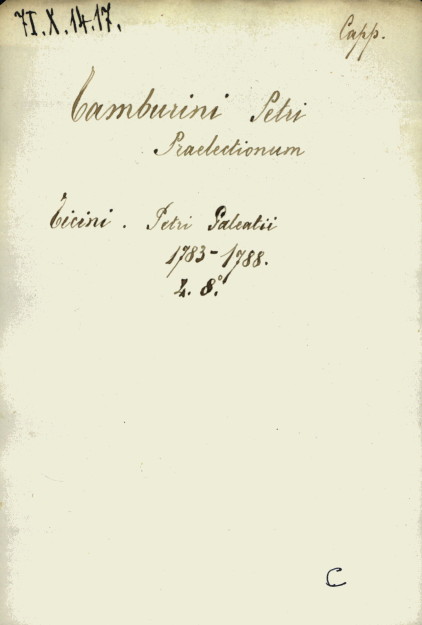 71.X.14.17.
Capp.
Tamburini Petri
Praelectionum
Ticini. Petri Galeatii
1783-1788.
4. 8.°
C